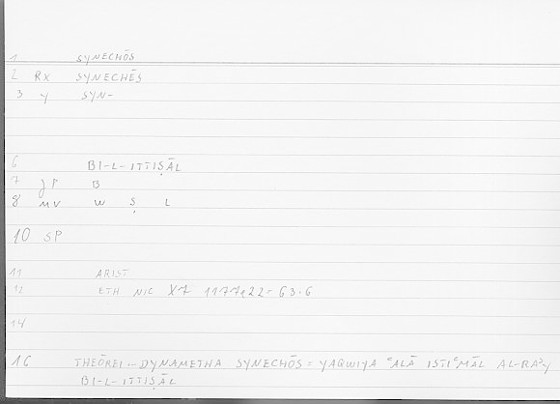 1 SYNECHŌS
2 RX SYNECHĒS
3 y SYN-
6 BI-L-ITTIṢĀL
7 JP B
8 MV W Ṣ L
10 SP
11 ARIST
12 ETH NIC X7 1177a22 = 63.6
14
16 THEŌREI - DYNAMETHA SYNECHŌS = YAQWIYA ʿALĀ ISTIʿMĀL AL-RAʾy
BI-L-ITTIṢĀL